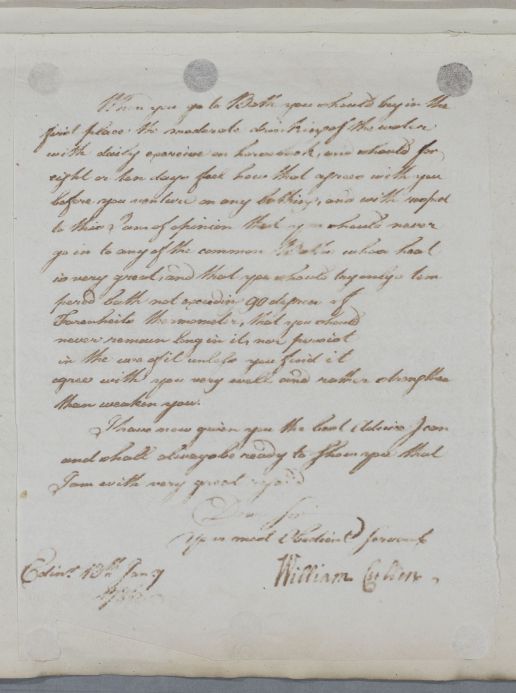 When you go to Bath you should begin in the
first place the moderate drinking of the water
with daily exercise on horseback, and should for
eight or ten days feel how that agrees with you
before you venture on any bathing, and with respect
to this I am of opinion that you should never
go in to any of the common Baths whose heat
is very great, and that you should try only a tem
pered bath not exceeding 90 degrees of
Farenheits thermometer, that you should
never remain long in it, nor persist
in the use of it unless you find it
agree with you very well and rather strengthen
than weaken you.
I have now given you the best advice I can
and shall always be ready to show you that
I am with very great regard
Dear Sir
Your most Obedient Servant
William Cullen
Edinr. Jany